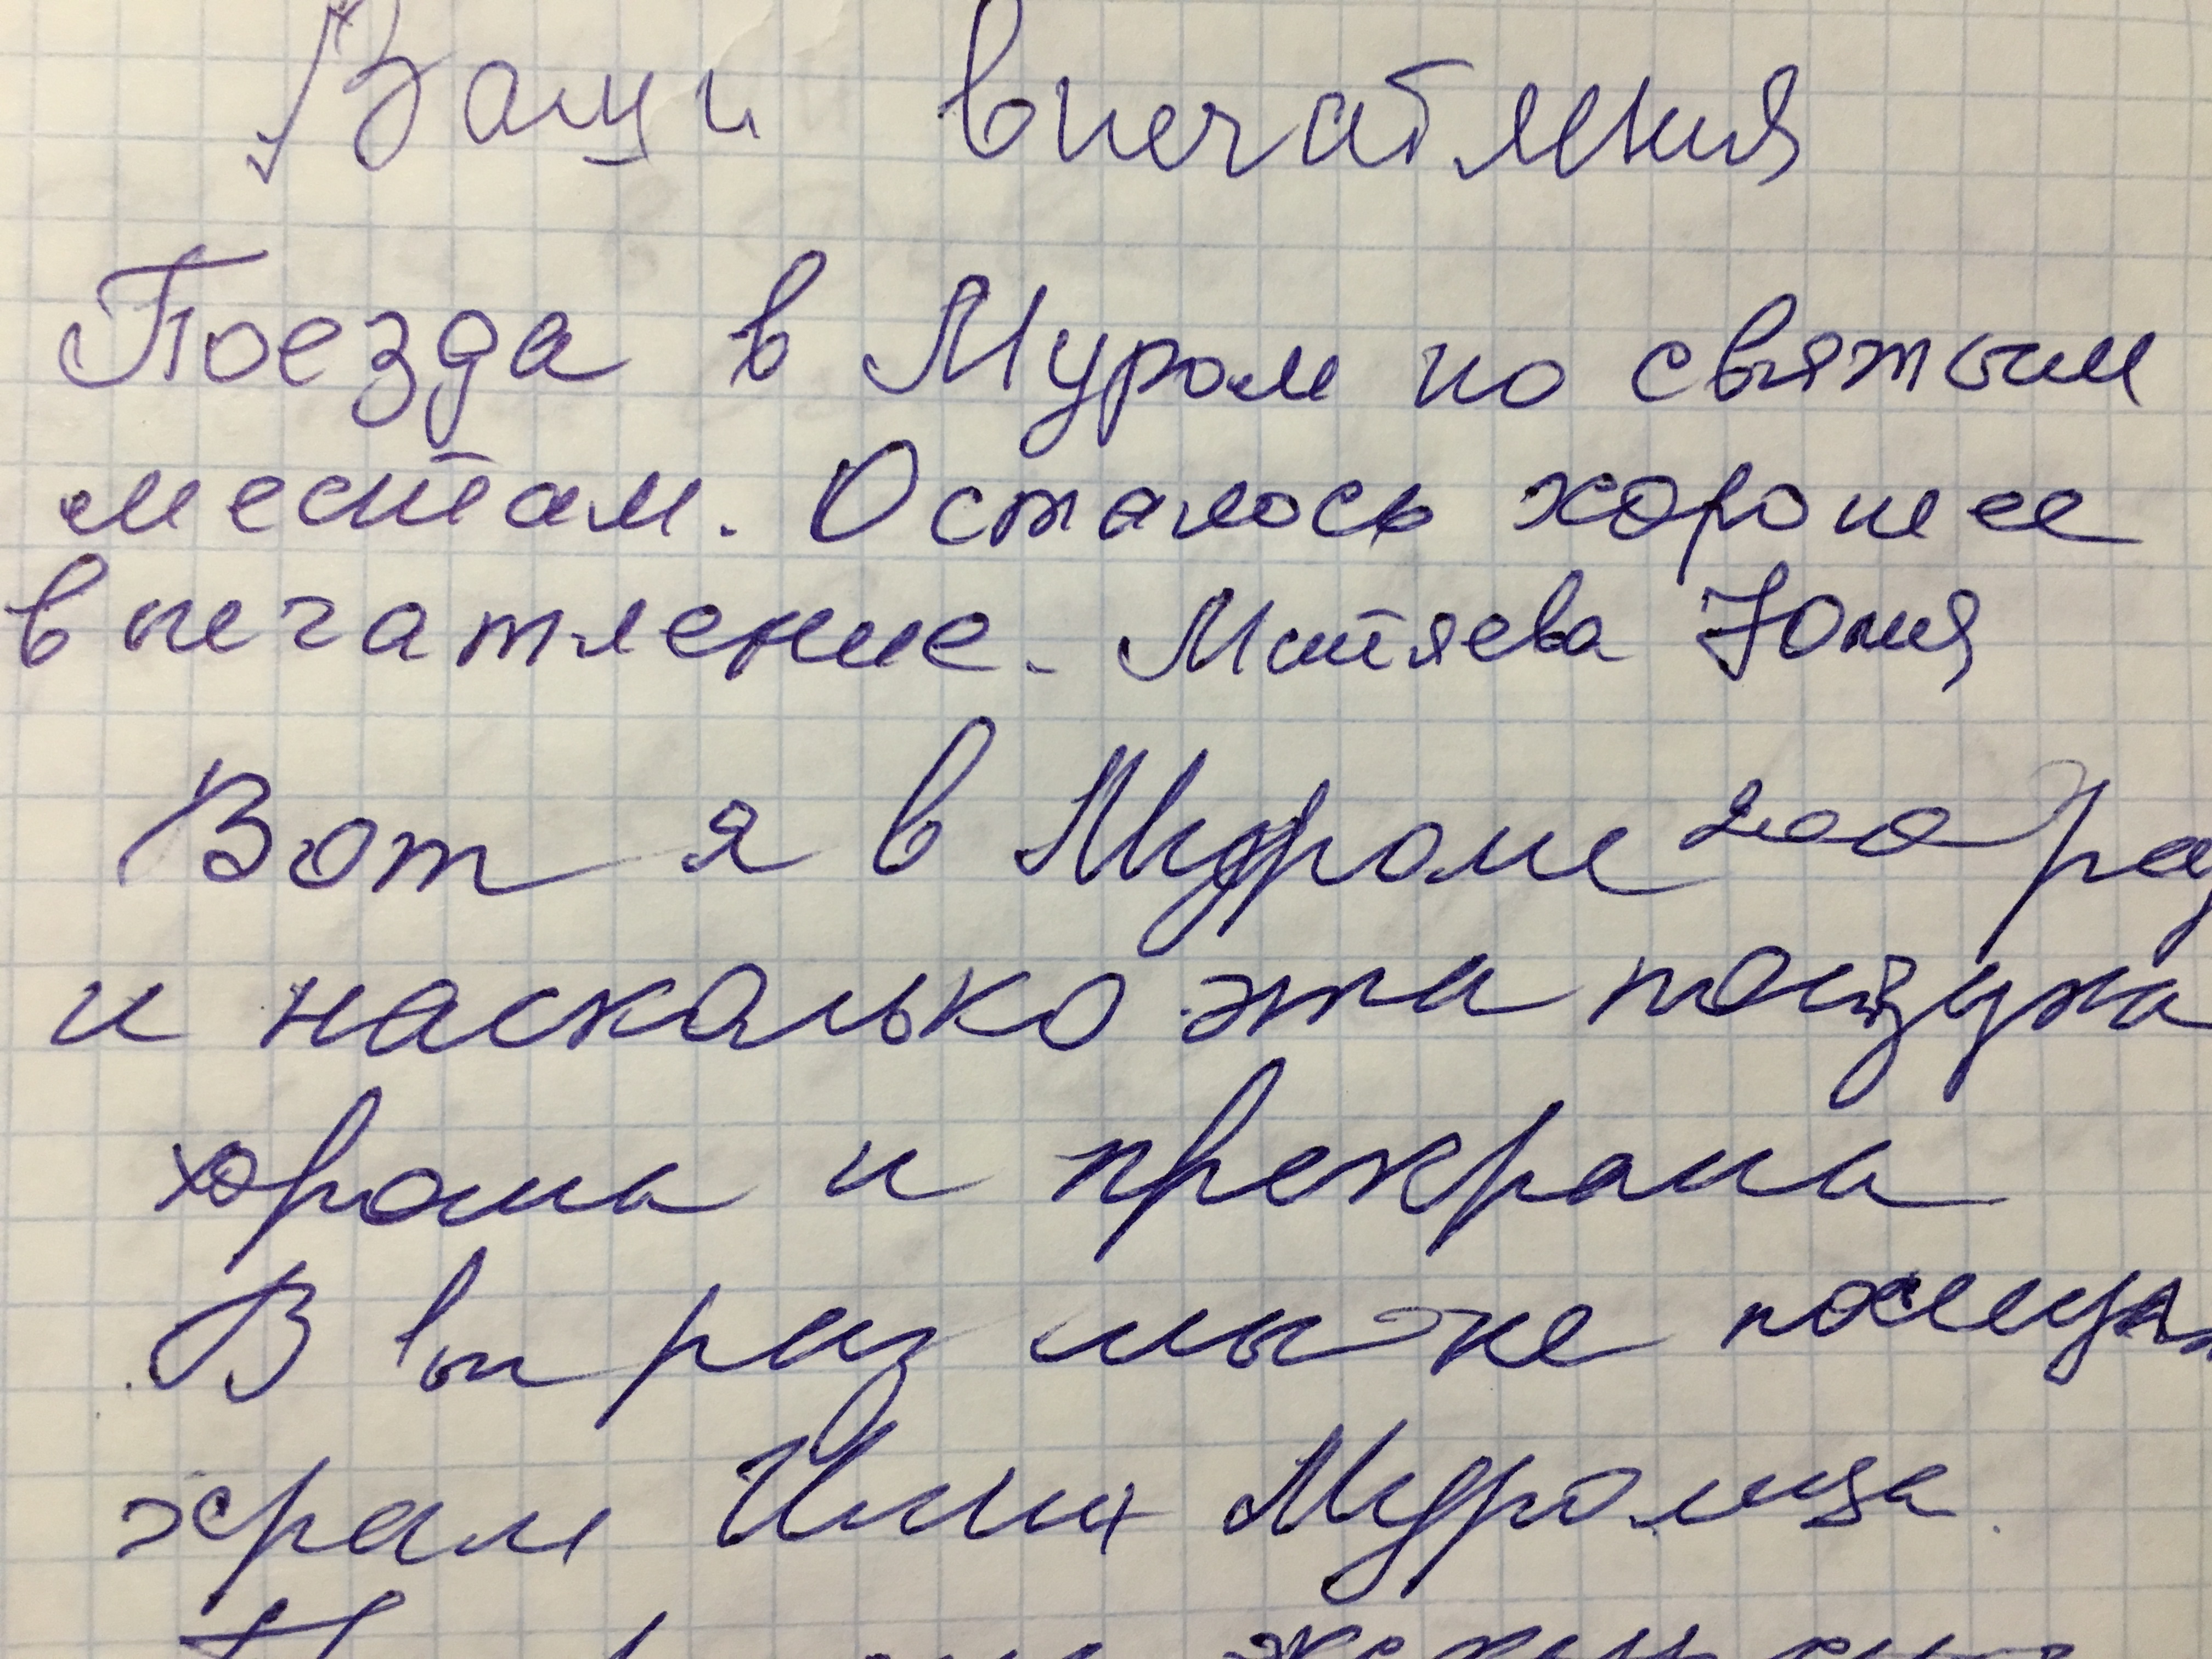 Ваши впечатления
Поезда в Муром по святым
местам. Осталось хорошее
впечатление. Митяева Юлия
Вот я в Муроме 2ой ра
и насколько эта поездка
хороша и прекрана
В раз мы же посещ
храм Ильи Муромца.